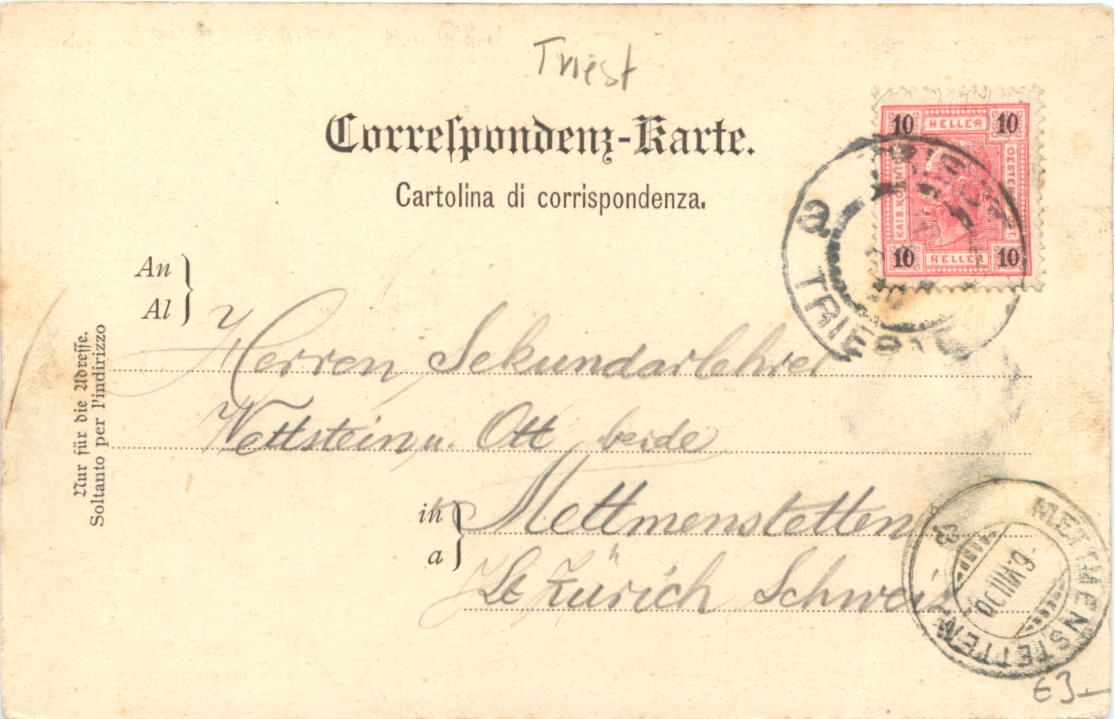 Triest
Correspondenz-Karte.
Cartolina di corrispondenza.
10 HELLER 10
KAIS. KÖNIGL.
10 HELLER 10
TRIEST
TRIEST
An
Al
Herren Sekundarlehrer
Wettstein u. Ott beide
in
a
Mettmenstetten
Kt Zürich Schweiz
Nur für die Adresse.
Soltanto per l'indirizzo
METTMENSTETTEN
-6.VIII.00-
63-